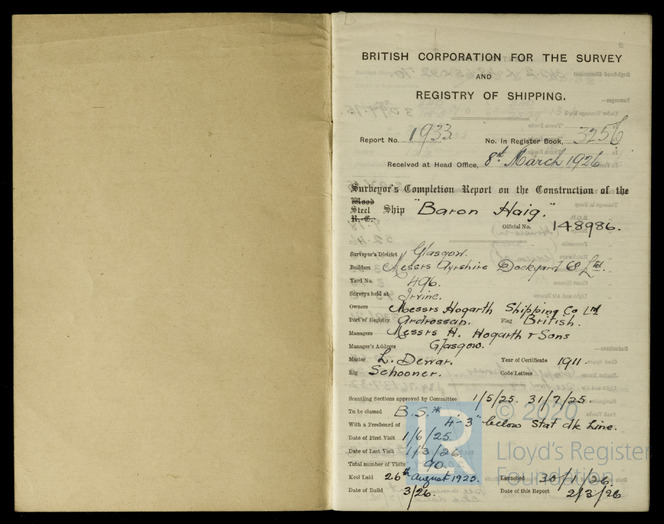 BRITISH CORPORATION FOR THE SURVEY
AND
REGISTRY OF SHIPPING.
Report No. 1933 No. in Register Book, 3256
Received at Head Office, 8th March 1926
Surveyor's Completion Report on the Construction of the
Wood
Steel Ship "Baron Haig."
R.-C.
Official No. 148986.
Surveyor's District Glasgow.
Builders Messrs Ayrshire Dockyard Co Ltd.
Yard No. 496.
Surveys held at Irvine.
Owners Messrs Hogarth Shipping Co Ltd
Port of Registry Ardrossan. Flag British.
Managers Messrs H. Hogarth & Sons
Manager's Address Glasgow.
Master L. Dewar. Year of Certificate 1911.
Rig Schooner. Code Letters
Scantling Sections approved by Committee 1/5/25. 31/7/25.
To be classed B.S.*
With a Freeboard of 4'-3" below Stat dk Line.
Date of First Visit 1/6/25.
Date of Last Visit 1/3/26.
Total number of Visits 90.
Keel Laid 26th August 1925. Launched 30/1/26.
Date of Build 3/26. Date of this Report 2/3/26
© 2020
LR
Lloyd's Register
Foundation